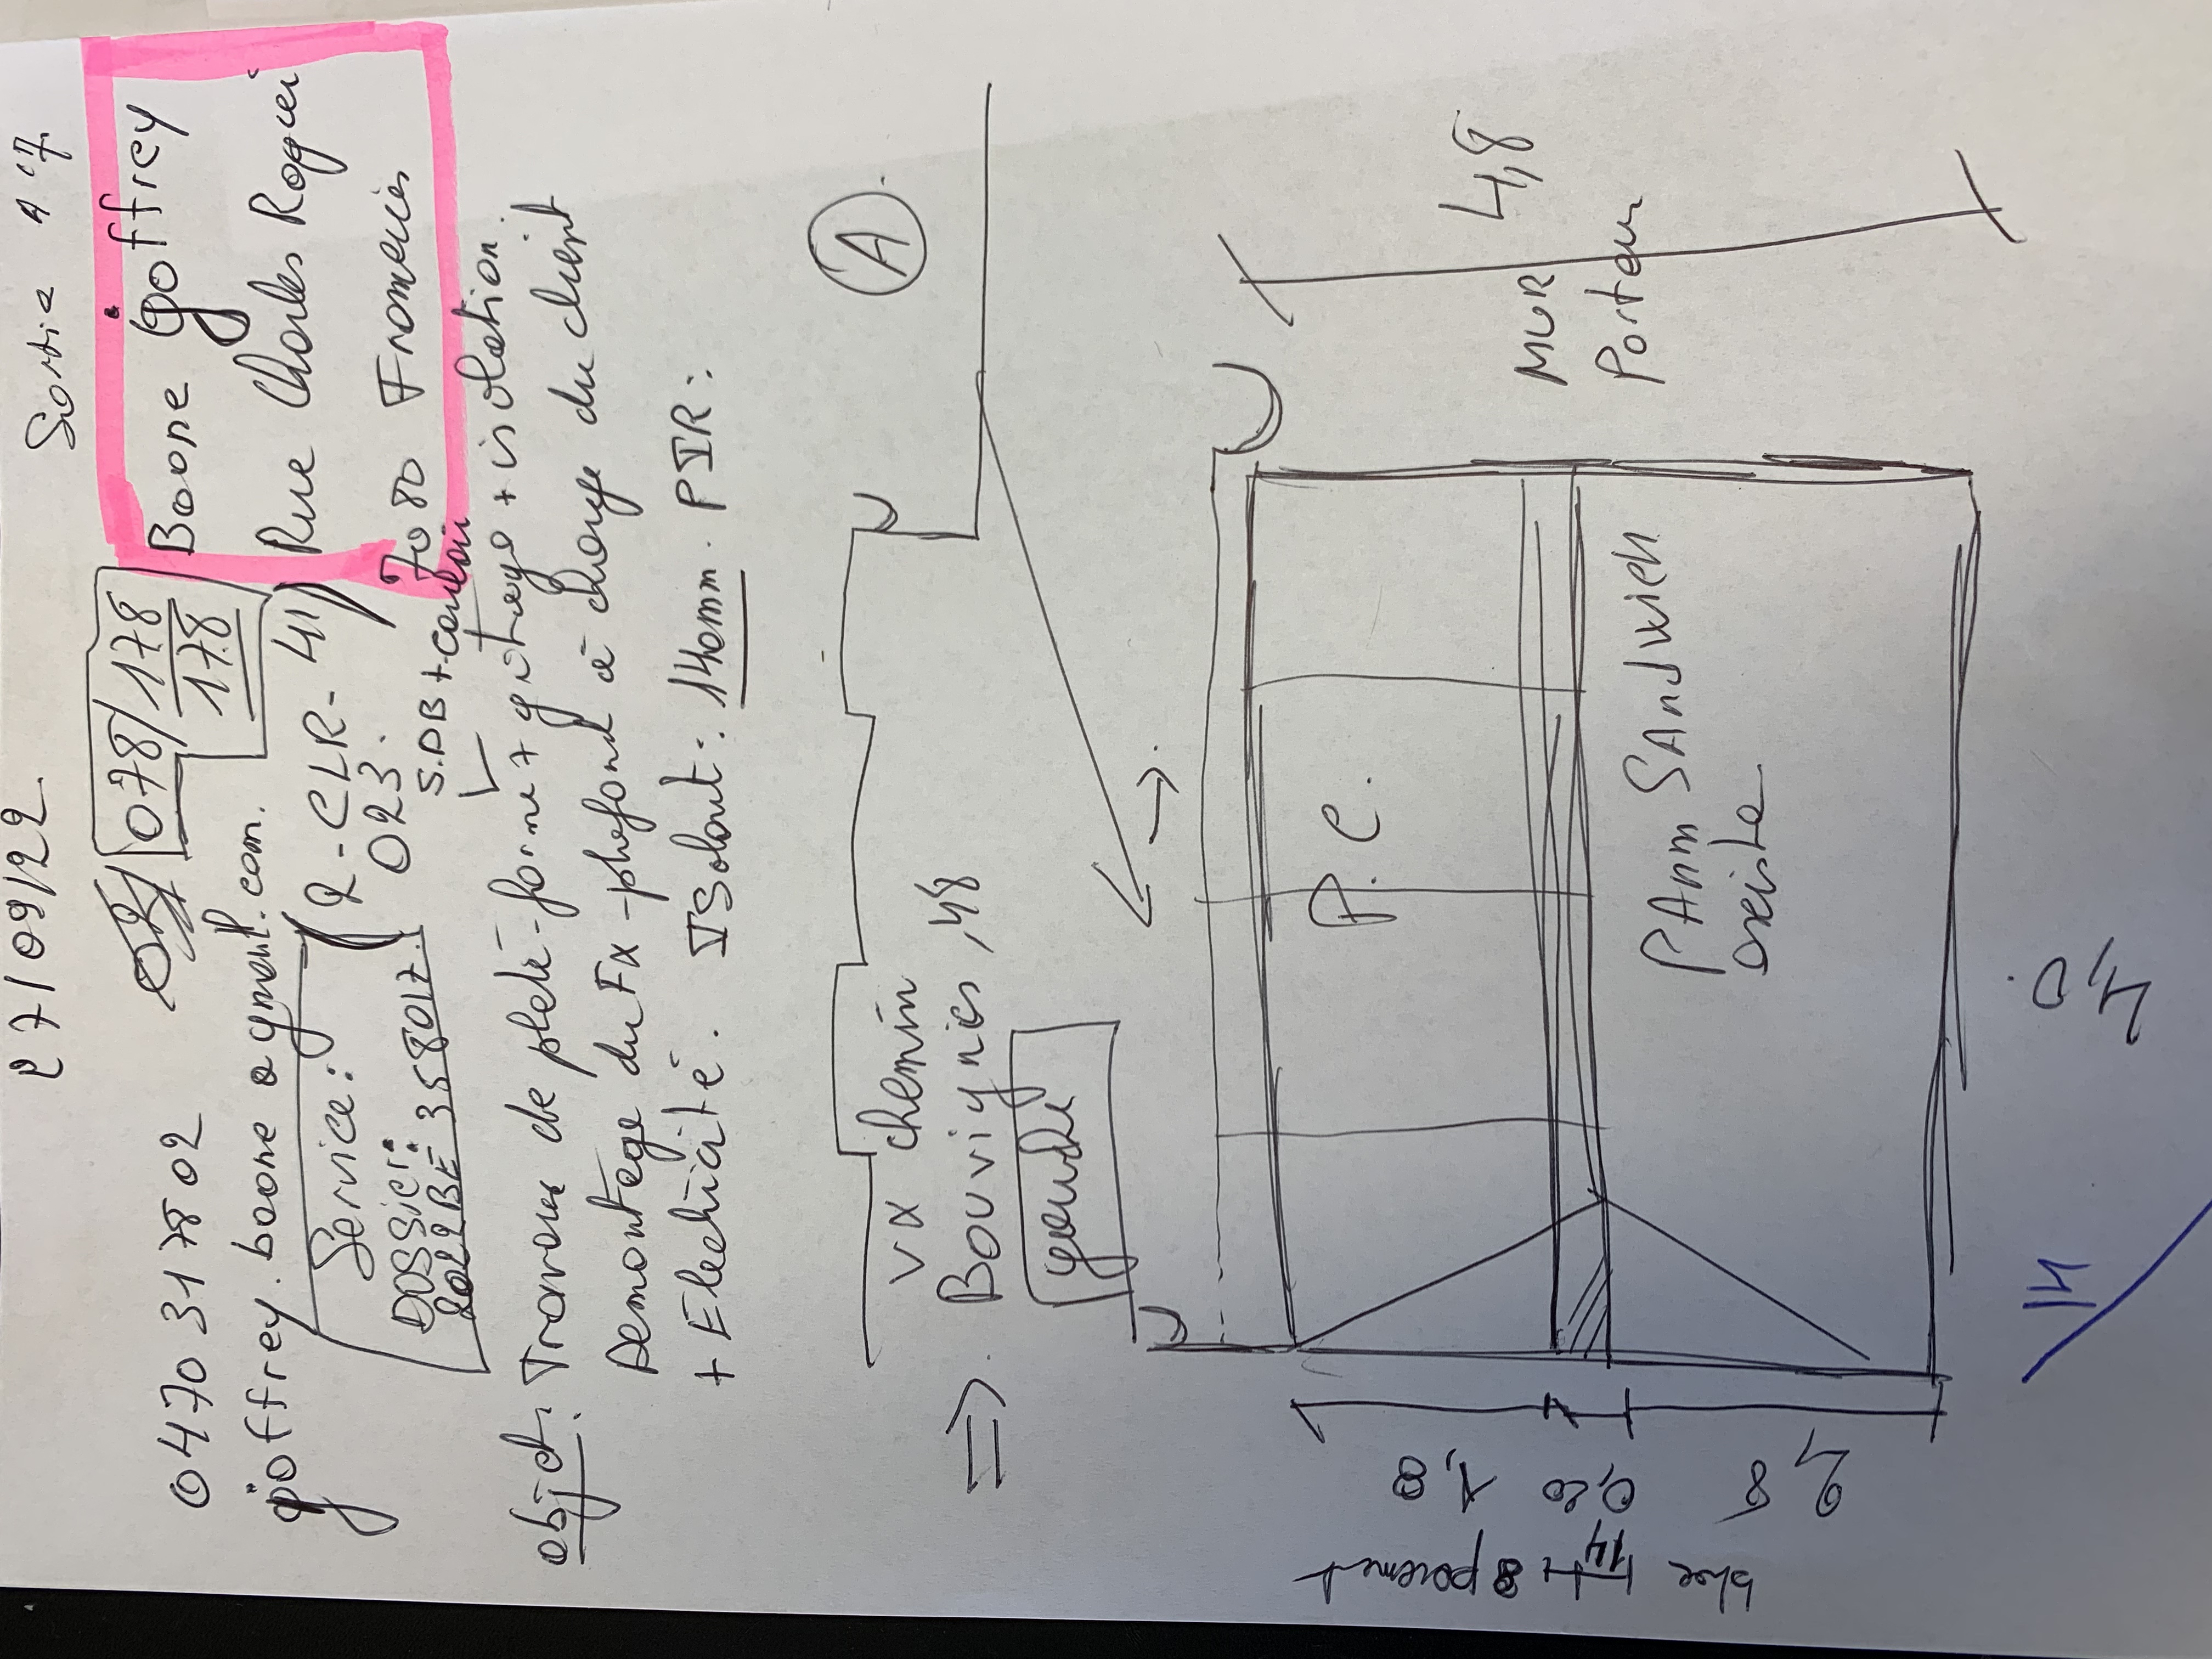 27/09/22
Sortie
0470 317802
078/178
178
Boone goffrey
Rue Charles Roquei
7080 Frameries
goffrey.boone@gmail.com.
Service:
(2-CLR-411)
023.
DOSSier:
2022BE 358017
S.DB + couloir
objet: Travaux de plate-forme + gitage + isolation
Demontage du Fx-plafond à charge du client
+ Electricité. ISolant: 140mm. PIR:
A
Vx chemin
Bouvignies, 48
gauche
4,8
MUR
Porteur
P.C.
PAnn SAndwich
existe
4,0
1,8
0,20
2,8
bloc 14 + parement